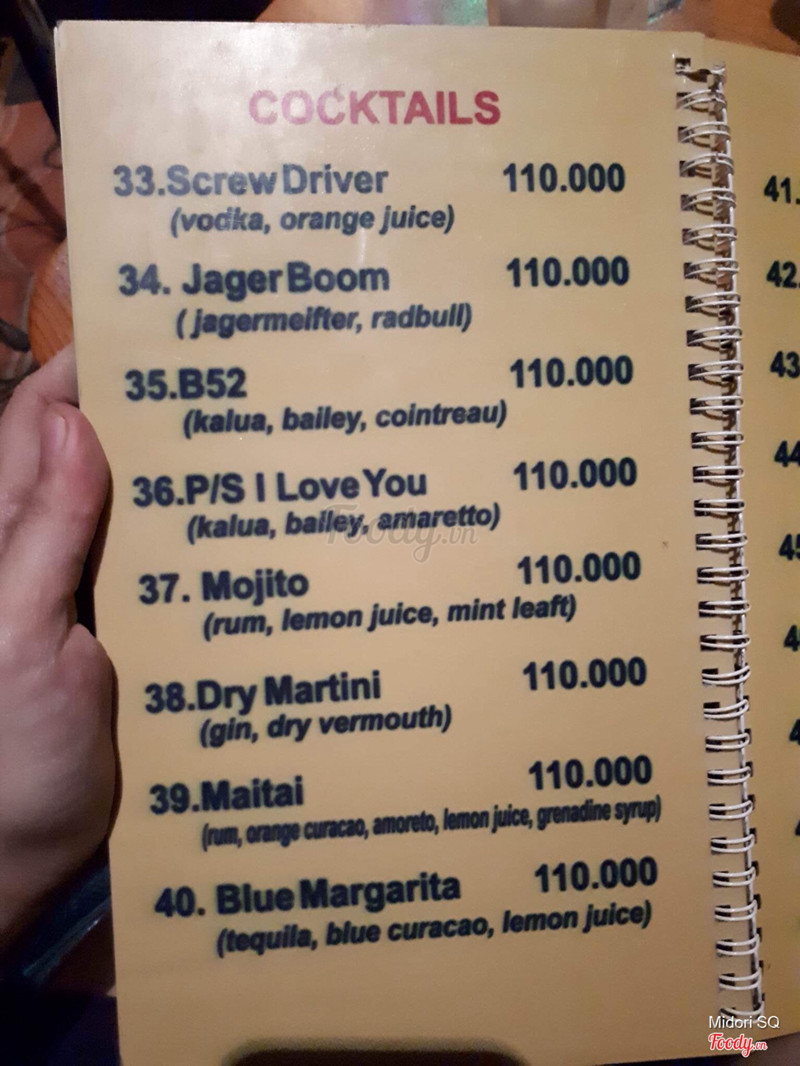 COCKTAILS
33.Screw Driver 110.000
(vodka, orange juice)
34. Jager Boom 110.000
( jagermeifter, radbull)
35.B52 110.000
(kalua, bailey, cointreau)
36.P/S I Love You 110.000
(kalua, bailey, amaretto)
Foody.vn
37. Mojito 110.000
(rum, lemon juice, mint leaft)
38.Dry Martini 110.000
(gin, dry vermouth)
39.Maitai 110.000
(rum, orange curacao, amoreto, lemon juice, grenadine syrup)
40. Blue Margarita 110.000
(tequila, blue curacao, lemon juice)
41.
42.
43
44
Midori SQ
Foody.vn